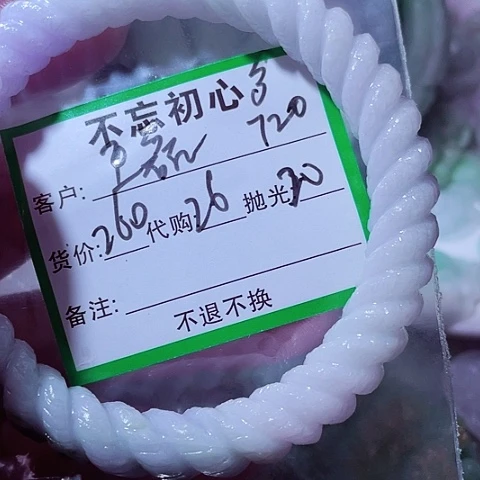 不忘初心
客户: 720
货价: 260 代购: 26 抛光 30
备注:
不退不换